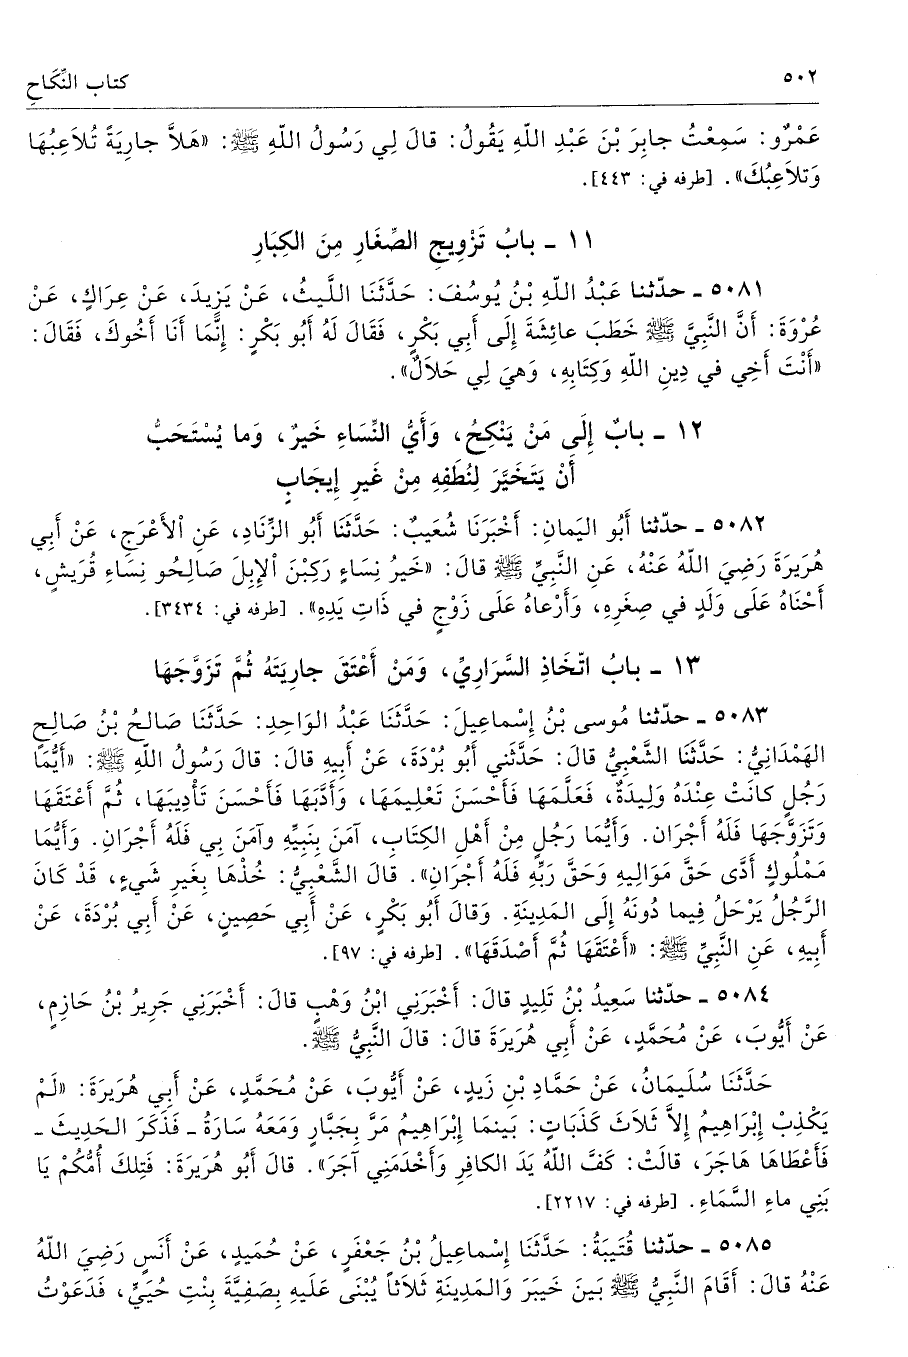 ٥٠٢
كتاب النِّكَاحِ
عَمْرٌو: سَمِعْتُ جابِرَ بْنَ عَبْدِ اللّهِ يَقُولُ: قالَ لِي رَسُولُ اللّهِ ﷺ: «هَلاَّ جارِيَةً تُلاَعِبُهَا
وَتلاَعِبُكَ». [طرفه في: ٤٤٣].
١١ ـ بابُ تَزْوِيجِ الصِّغَارِ مِنَ الكِبَارِ
٥٠٨١ ـ حدّثنا عَبْدُ اللّهِ بْنُ يُوسُفَ: حَدَّثَنَا اللَّيثُ، عَنْ يَزِيدَ، عَنْ عِرَاكٍ، عَنْ
عُرْوَةَ: أَنَّ النَّبِيَّ ﷺ خَطَبَ عائِشَةَ إِلَى أَبِي بَكْرٍ، فَقَالَ لَهُ أَبُو بَكْرٍ: إِنَّمَا أَنَا أَخُوكَ، فَقَالَ:
«أَنْتَ أَخِي في دِينِ اللّهِ وَكِتَابِهِ، وَهيَ لِي حَلاَلٌ».
١٢ ـ بابٌ إِلَى مَنْ يَنْكِحُ، وَأَيُّ النِّسَاءِ خَيرٌ، وَما يُسْتَحَبُّ
أَنْ يَتَخَيَّرَ لِنُطَفِهِ مِنْ غَيرِ إِيجَابٍ
٥٠٨٢ ـ حدّثنا أَبُو اليَمانِ: أَخْبَرَنَا شُعَيبٌ: حَدَّثَنَا أَبُو الزِّنَادِ، عَنِ اْلأَعْرَجِ، عَنْ أَبِي
هُرَيرَةَ رَضِيَ اللّهُ عَنْهُ، عَنِ النَّبِيِّ ﷺ قالَ: «خَيرُ نِسَاءٍ رَكِبْنَ اْلإِبِلَ صَالِحُو نِسَاءِ قُرَيشٍ،
أَحْنَاهُ عَلَى وَلَدٍ في صِغَرِهِ، وَأَرْعاهُ عَلَى زَوْجٍ في ذَاتِ يَدِهِ». [طرفه في: ٣٤٣٤].
١٣ ـ بابُ اتِّخَاذِ السَّرَارِيِّ، وَمَنْ أَعْتَقَ جارِيَتَهُ ثُمَّ تَزَوَّجَهَا
٥٠٨٣ ـ حدّثنا مُوسى بْنُ إِسْماعِيلَ: حَدَّثَنَا عَبْدُ الوَاحِدِ: حَدَّثَنَا صَالحُ بْنُ صَالِحٍ
الهَمْدَانِيُّ: حَدَّثَنَا الشَّعْبِيُّ قالَ: حَدَّثَني أَبُو بُرْدَةَ، عَنْ أَبِيهِ قالَ: قالَ رَسُولُ اللّهِ ﷺ: «أَيُّمَا
رَجُلٍ كانَتْ عِنْدَهُ وَلِيدَةٌ، فَعَلَّمَهَا فَأَحْسَنَ تَعْلِيمَهَا، وَأَدَّبَهَا فَأَحْسَنَ تَأْدِيبَهَا، ثُمَّ أَعْتَقَهَا
وَتَزَوَّجَهَا فَلَهُ أَجْرَان. وَأَيُّمَا رَجُلٍ مِنْ أَهْلِ الكِتَابِ، آمَنَ بِنَبِيِّهِ وآمَنَ بِي فَلَهُ أَجْرَانِ. وَأَيُّمَا
مَمْلُوكٍ أَدَّى حَقَّ مَوَالِيهِ وَحَقَّ رَبِّهِ فَلَهُ أَجْرَانِ». قالَ الشَّعْبِيُّ: خُذْهَا بِغَيرِ شَيءٍ، قَدْ كَانَ
الرَّجُلُ يَرْحَلُ فِيما دُونَهُ إِلَى المَدِينَةِ. وَقالَ أَبُو بَكْرٍ، عَنْ أَبِي حَصِينٍ، عَنْ أَبِي بُرْدَةَ، عَنْ
أَبِيهِ، عَنِ النَّبِيِّ ﷺ: «أَعْتَقَهَا ثُمَّ أَصْدَقَهَا». [طرفه في: ٩٧].
٥٠٨٤ ـ حدّثنا سَعِيدُ بْنُ تَلِيدٍ قالَ: أَخْبَرَنِي ابْنُ وَهْبٍ قالَ: أَخْبَرَنِي جَرِيرُ بْنُ حَازِمٍ،
عَنْ أَيُّوبَ، عَنْ مُحَمَّدٍ، عَنْ أَبِي هُرَيرَةَ قالَ: قالَ النَّبِيُّ ﷺ.
حَدَّثَنَا سُلَيمَانُ، عَنْ حَمَّادِ بْنِ زَيدٍ، عَنْ أَيُّوبَ، عَنْ مُحَمَّدٍ، عَنْ أَبِي هُرَيرَةَ: «لَمْ
يَكْذِبْ إِبْرَاهِيمُ إِلاَّ ثَلاَثَ كَذَبَاتٍ: بَينَما إِبْرَاهِيمُ مَرَّ بِجَبَّارٍ وَمَعَهُ سَارَةُ ـ فَذَكَرَ الحَدِيثَ ـ
فَأَعْطَاهَا هَاجَرَ، قالَتْ: كَفَّ اللّهُ يَدَ الكافِرِ وَأَخْدَمَنِي آجَرَ». قالَ أَبُو هُرَيرَةَ: فَتِلكَ أُمُّكُمْ يَا
بَنِي ماءِ السَّمَاءِ. [طرفه في: ٢٢١٧].
٥٠٨٥ ـ حدّثنا قُتَيبَةُ: حَدَّثَنَا إِسْماعِيلُ بْنُ جَعْفَرٍ، عَنْ حُمَيدٍ، عَنْ أَنَسٍ رَضِيَ اللّهُ
عَنْهُ قالَ: أَقَامَ النَّبِيُّ ﷺ بَينَ خَيبَرَ وَالمَدِينَةِ ثَلاَثاً يُبْنَى عَلَيهِ بِصَفِيَّةَ بِنْتِ حُيَيٍّ، فَدَعَوْتُ